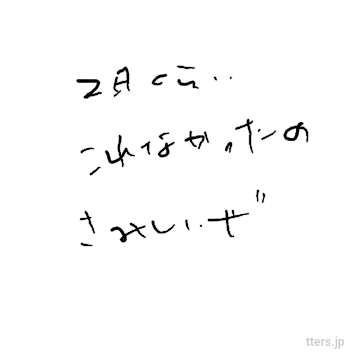 2月くら..
これなかったの
さみしいぜ
tters.jp